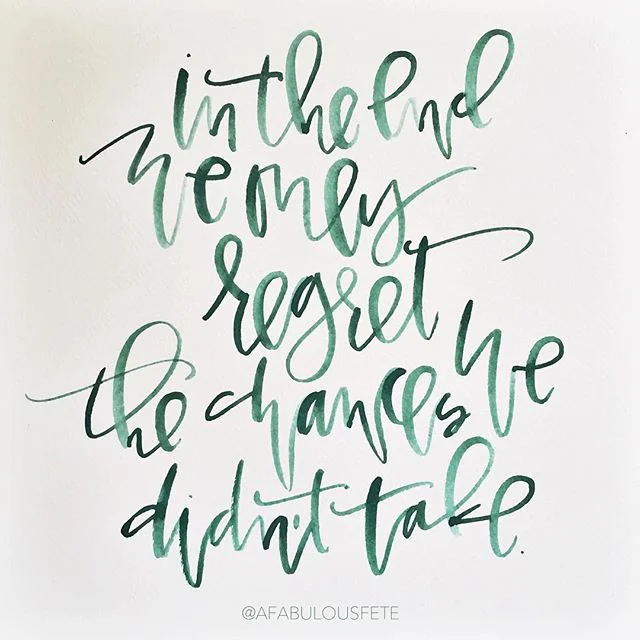 in the end
we only
regret
the chances we
didn't take.
@AFABULOUSFETE